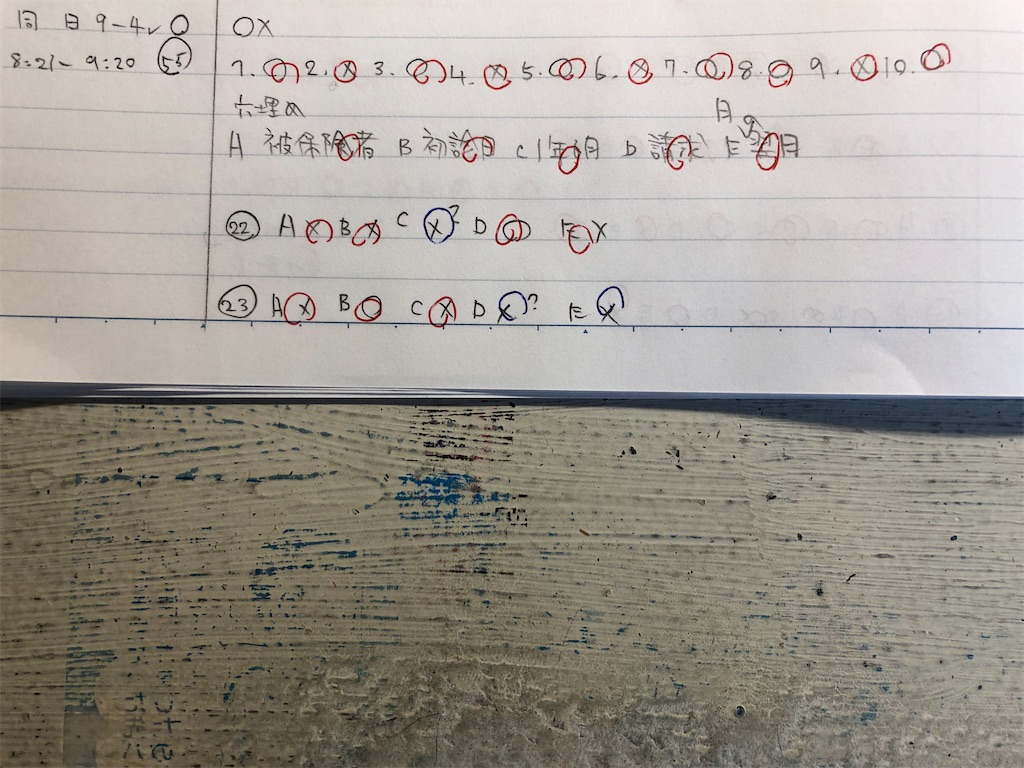 同 日 9-4、○
8:21~ 9:20 55
○×
1.○ 2.× 3.○ 4.× 5.○ 6.× 7.○ 8.○ 9.× 10.○
穴埋め
A 被保険者 B 初診日 C 1年6月 D 請求 E 翌月
月の
22 A× B× C×? D○ E×
23 A× B○ C× D×? E×